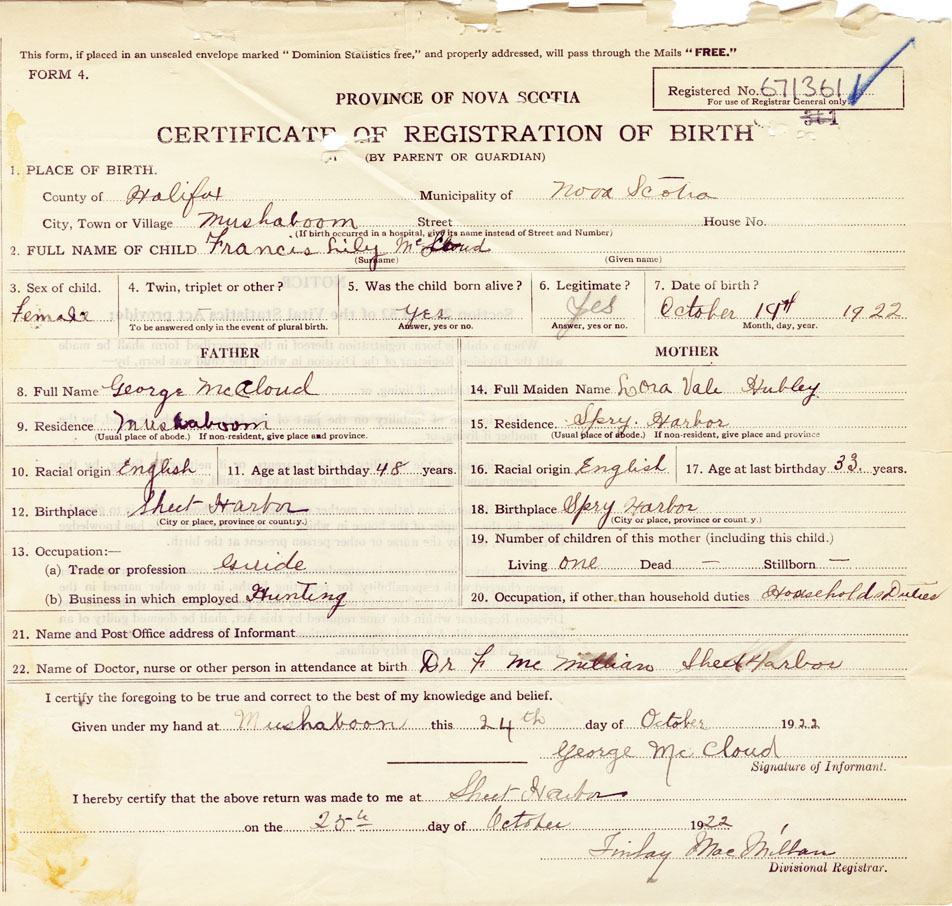 This form, if placed in an unsealed envelope marked "Dominion Statistics free," and properly addressed, will pass through the Mails "FREE."
FORM 4.
Registered No. 671361
For use of Registrar General only
PROVINCE OF NOVA SCOTIA
CERTIFICATE OF REGISTRATION OF BIRTH
(BY PARENT OR GUARDIAN)
1. PLACE OF BIRTH.
County of Halifax Municipality of Nova Scotia
City, Town or Village Mushaboom Street House No.
(If birth occurred in a hospital, give its name instead of Street and Number)
2. FULL NAME OF CHILD Francis Lily McCloud
(Surname) (Given name)
3. Sex of child. 4. Twin, triplet or other? 5. Was the child born alive? 6. Legitimate? 7. Date of birth?
Female Yes Yes October 19th 1922
To be answered only in the event of plural birth. Answer, yes or no. Answer, yes or no. Month, day, year.
FATHER MOTHER
8. Full Name George McCloud 14. Full Maiden Name Lora Vale Hubley
9. Residence Mushaboom 15. Residence. Spry. Harbor
(Usual place of abode.) If non-resident, give place and province. (Usual place of abode.) If non-resident, give place and province
10. Racial origin English 11. Age at last birthday 48 years. 16. Racial origin English 17. Age at last birthday 33 years.
12. Birthplace Sheet Harbor 18. Birthplace Spry Harbor
(City or place, province or country.) (City or place, province or country.)
13. Occupation:— 19. Number of children of this mother (including this child.)
(a) Trade or profession Guide Living one Dead — Stillborn —
(b) Business in which employed Hunting 20. Occupation, if other than household duties Households Duties
21. Name and Post Office address of Informant
22. Name of Doctor, nurse or other person in attendance at birth Dr F Mc Millian Sheet Harbor
I certify the foregoing to be true and correct to the best of my knowledge and belief.
Given under my hand at Mushaboon this 24th day of October 1922
George Mc Cloud
Signature of Informant.
I hereby certify that the above return was made to me at Sheet Harbor
on the 25th day of October 1922
Finlay MacMillan
Divisional Registrar.